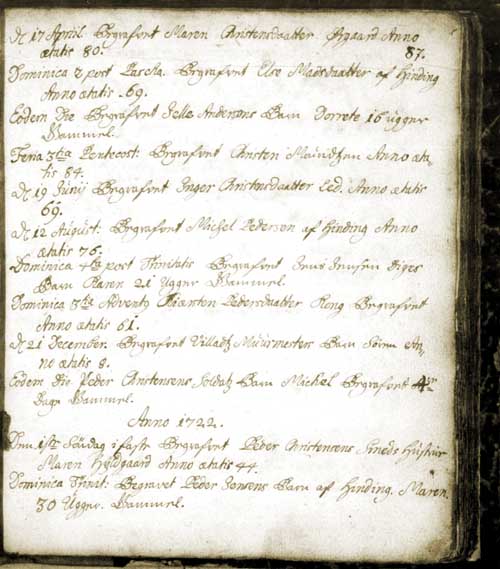 d. 17 April. Begrafvet Maren Christensdaatter Aggaard Anno
ætatis 80.
87.
Dominica 2 post Pascha. Begrafvet Else Madsdaatter af Hinding
Anno ætatis. 69.
Eodem Die Begrafvet Jelle Andersens Barn Dorrete 16 ugger
Gammel.
Feria 3tia Pentecost: Begrafvet Christen Mauridtzen Anno æta-
tis 84.
d. 19 Junij Begrafvet Inger Christensdaatter Eed. Anno ætatis
69.
d. 12 August: Begrafvet Michel Pederson af Hinding Anno
ætatis 76.
Dominica 4ta post Trinitatis Begrafvet Jens Jensen
Barn Karen 21 Ugger Gammel.
Dominica 3tia Adventy Kiærsten Pedersdaatter Begrafvet
Anno ætatis 61.
d. 21 December. Begrafvet Villadtz Muurmesters Barn Søren An-
no ætatis 8.
Eodem Die Peder Christensens Soldatz Barn Michel Begrafvet 4re
Dage Gammel.
Anno 1722.
Den 1ste Søndag i faste Begrafvet Peder Christensens Smeds Hustrue
Maren Hyldgaard Anno ætatis 44.
Dominica Trinit: Begravet Peder Jensens Barn af Hinding. Maren.
30 Ugger. Gammel.